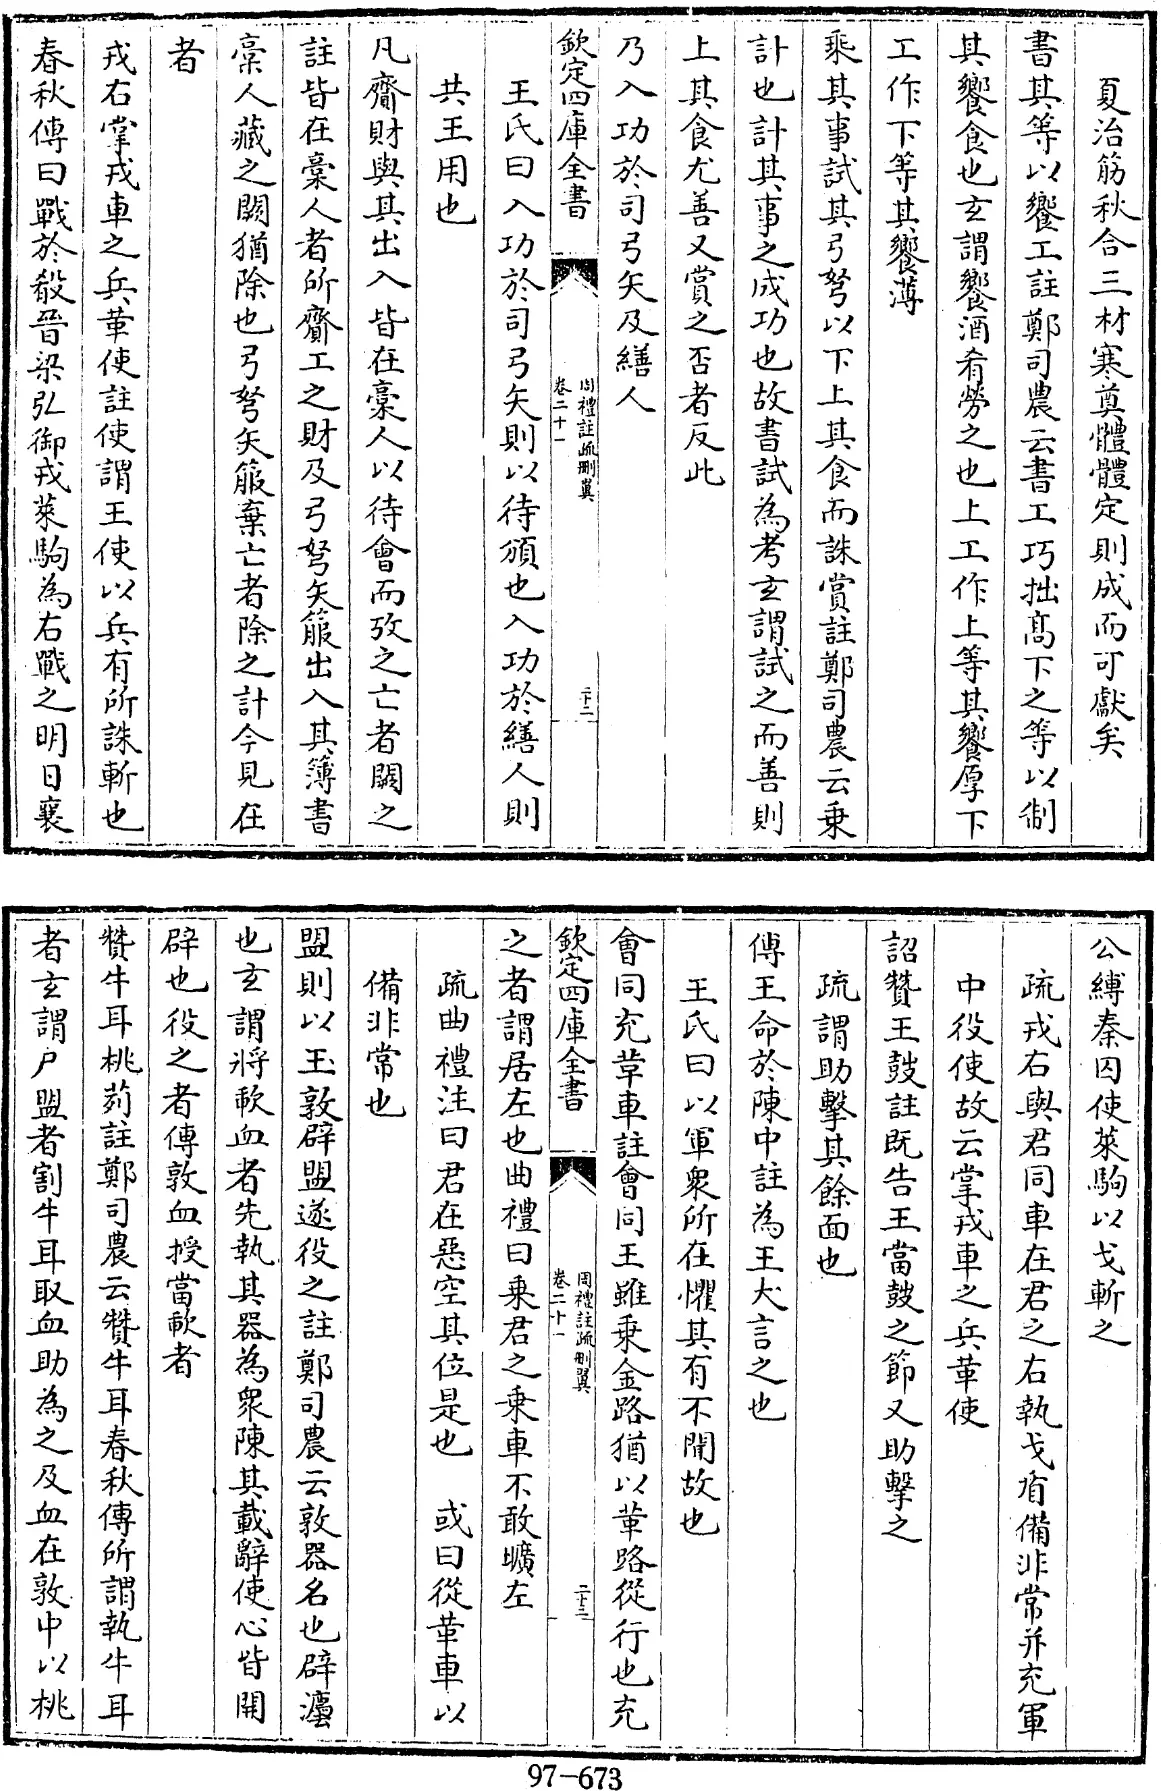 夏治筋秋合三材寒奠體體定則成而可獻矣
書其等以饗工註鄭司農云書工巧拙高下之等以制
其饗食也玄謂饗酒肴勞之也上工作上等其饗厚下
工作下等其饗薄
乘其事試其弓弩以下上其食而誅賞註鄭司農云乗
計也計其事之成功也故書試為考玄謂試之而善則
上其食尤善又賞之否者反此
乃入功於司弓矢及繕人
欽定四庫全書
周禮註疏刪翼
卷二十一
二十二
王氏曰入功於司弓矢則以待頒也入功於繕人則
共王用也
凡齎財與其出入皆在槀人以待會而攷之亡者闕之
註皆在槀人者所齎工之財及弓弩矢箙出入其簿書
槀人藏之闕猶除也弓弩矢箙棄亡者除之計今見在
者
戎右掌戎車之兵革使註使謂王使以兵有所誅斬也
春秋傳曰戰於殽晉梁弘御戎萊駒為右戰之明日襄
公縛秦囚使萊駒以戈斬之
疏戎右與君同車在君之右執戈盾備非常并充軍
中役使故云掌戎車之兵革使
詔贊王鼓註既告王當鼓之節又助擊之
疏謂助擊其餘面也
傳王命於陳中註為王大言之也
王氏曰以軍衆所在懼其有不聞故也
會同充革車註會同王雖乗金路猶以革路從行也充
欽定四庫全書
周禮註疏刪翼
卷二十一
二十三
之者謂居左也曲禮曰乗君之乗車不敢曠左
疏曲禮注曰君在惡空其位是也　或曰從革車以
備非常也
盟則以玉敦辟盟遂役之註鄭司農云敦器名也辟灋
也玄謂將歃血者先執其器為衆陳其載辭使心皆開
辟也役之者傳敦血授當歃者
贊牛耳桃茢註鄭司農云贊牛耳春秋傳所謂執牛耳
者玄謂尸盟者割牛耳取血助為之及血在敦中以桃
97-673